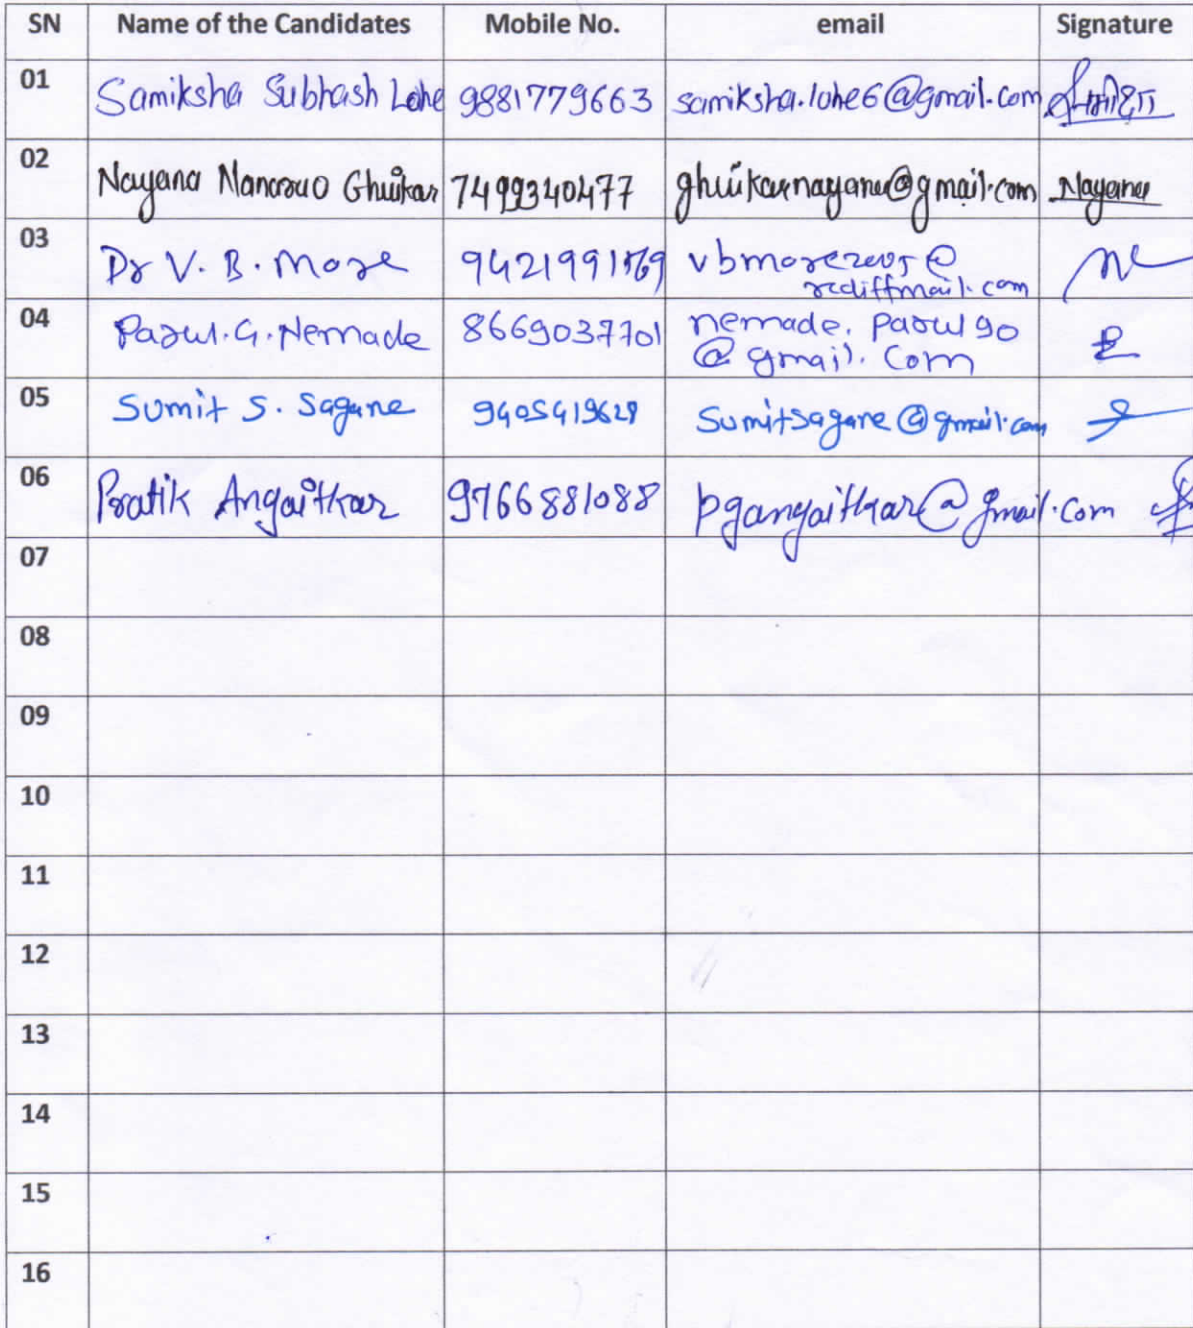 SN Name of the Candidates Mobile No. email Signature
01 Samiksha Subhash Lohe 9881779663 samiksha.lohe6@gmail.com समीक्षा
02 Nayana Manoruo Ghuikar 7499340477 ghuikarnayana@gmail.com Nayana
03 Dr V. B. More 9421991569 vbmore2005@
rediffmail.com
04 Parul. G. Nemade 8669037701 nemade. parul90
@gmail. Com
05 Sumit S. Sagane 9405419628 Sumitsagane@gmail.com
06 Pratik Angaitkar 9766881088 pgangaitkar@gmail.com
07
08
09
10
11
12
13
14
15
16